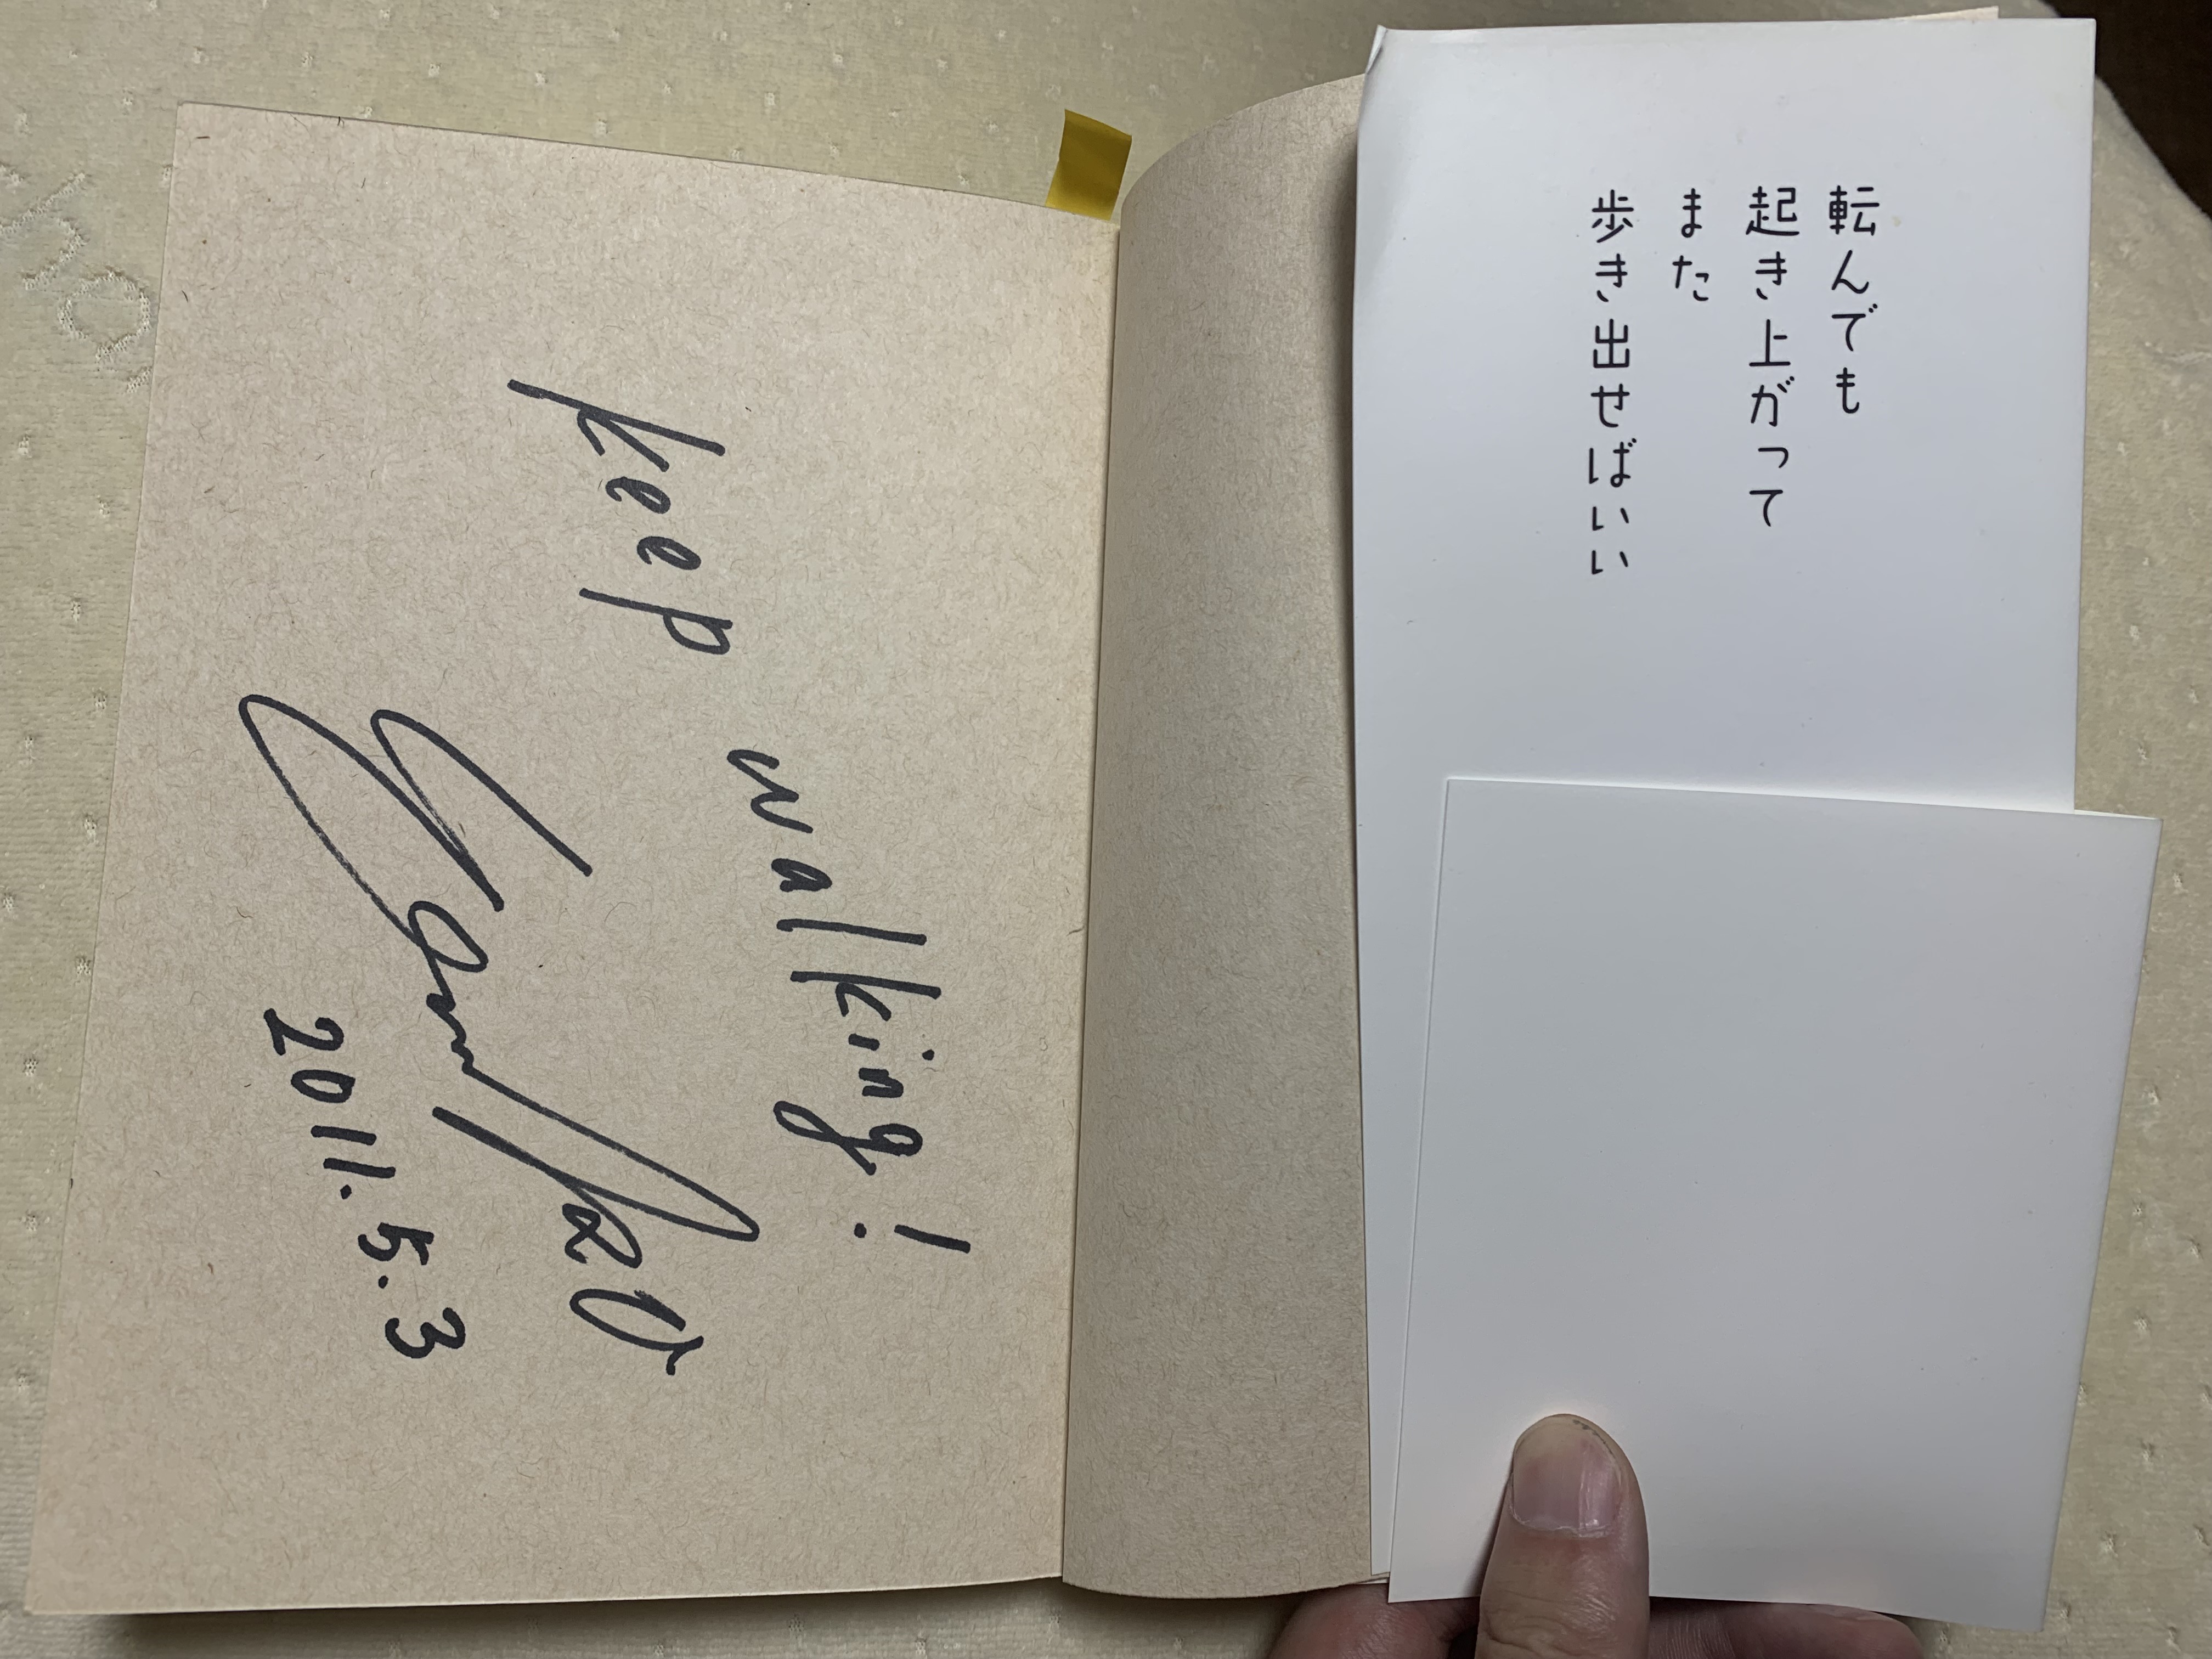 転んでも
起き上がって
また
歩き出せばいい
keep walking!
2011.5.3